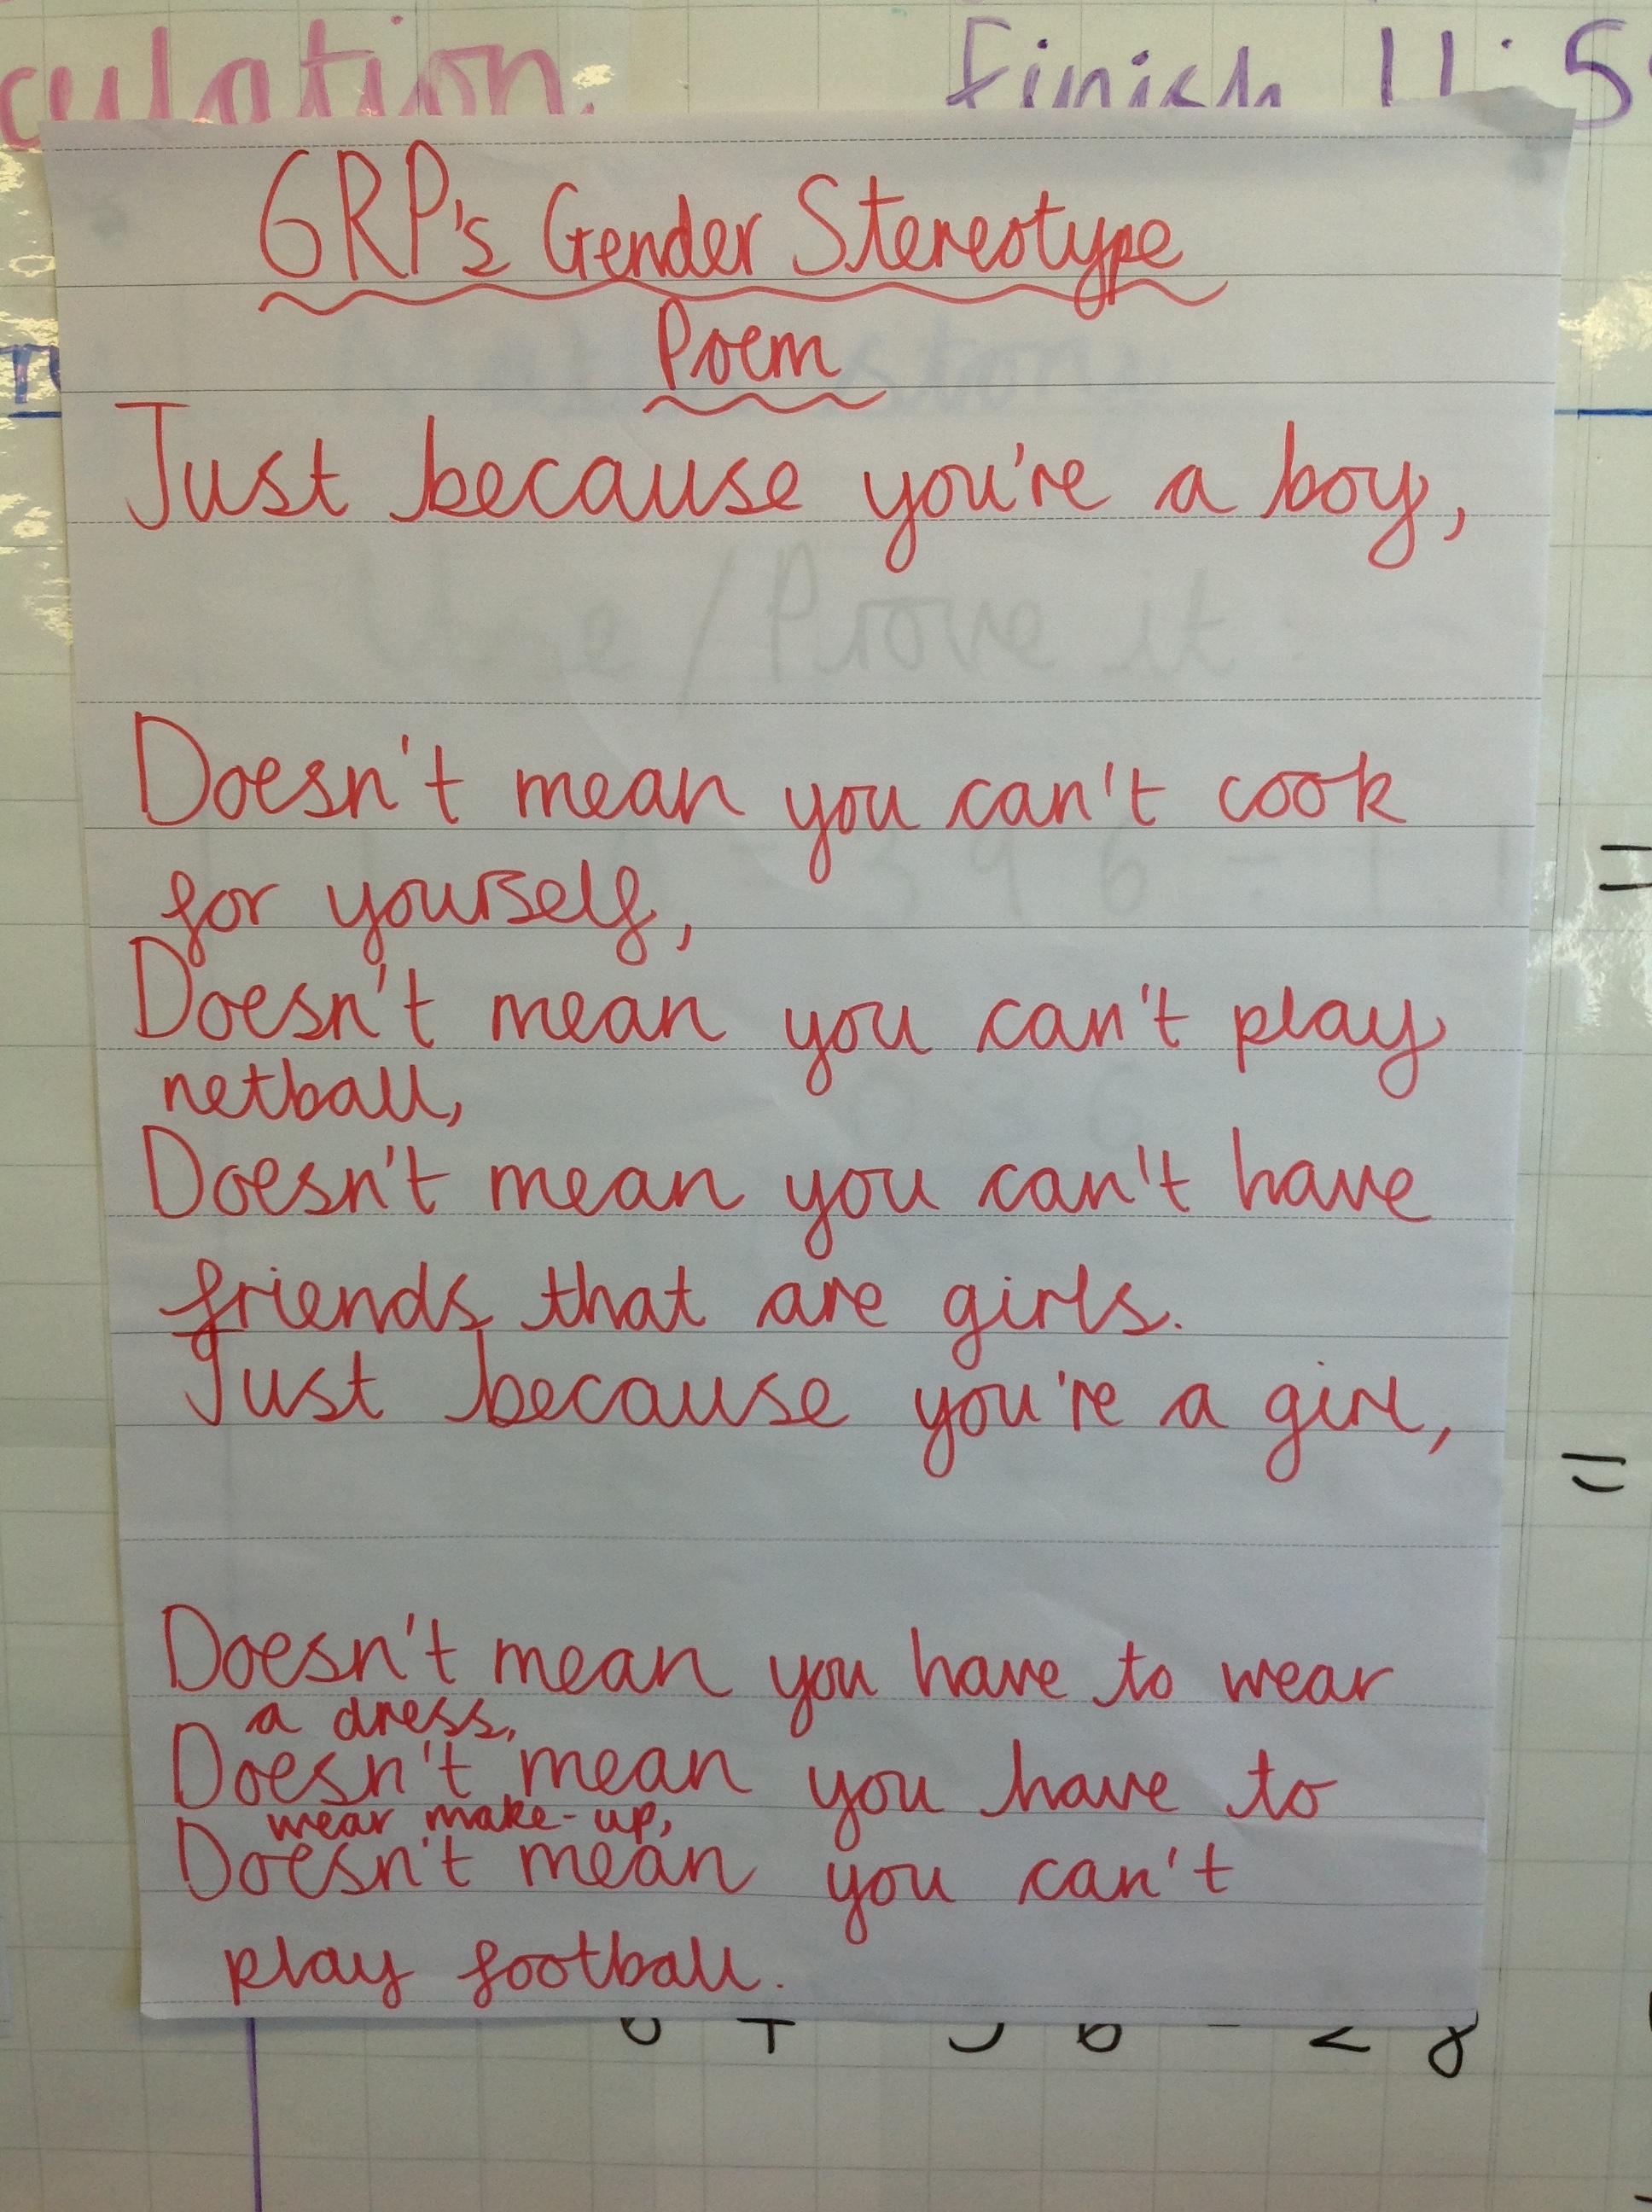 culation.
Finish 11:5
6RP's Gender Stereotype
Poem
Just because you're a boy,
Use/Prove it:
Doesn't mean you can't cook
for yourself,
Doesn't mean you can't play
netball,
Doesn't mean you can't have
friends that are girls.
Just because you're a girl,
Doesn't mean you have to wear
a dress,
Doesn't mean you have to
wear make-up,
Doesn't mean you can't
play football.
=
=